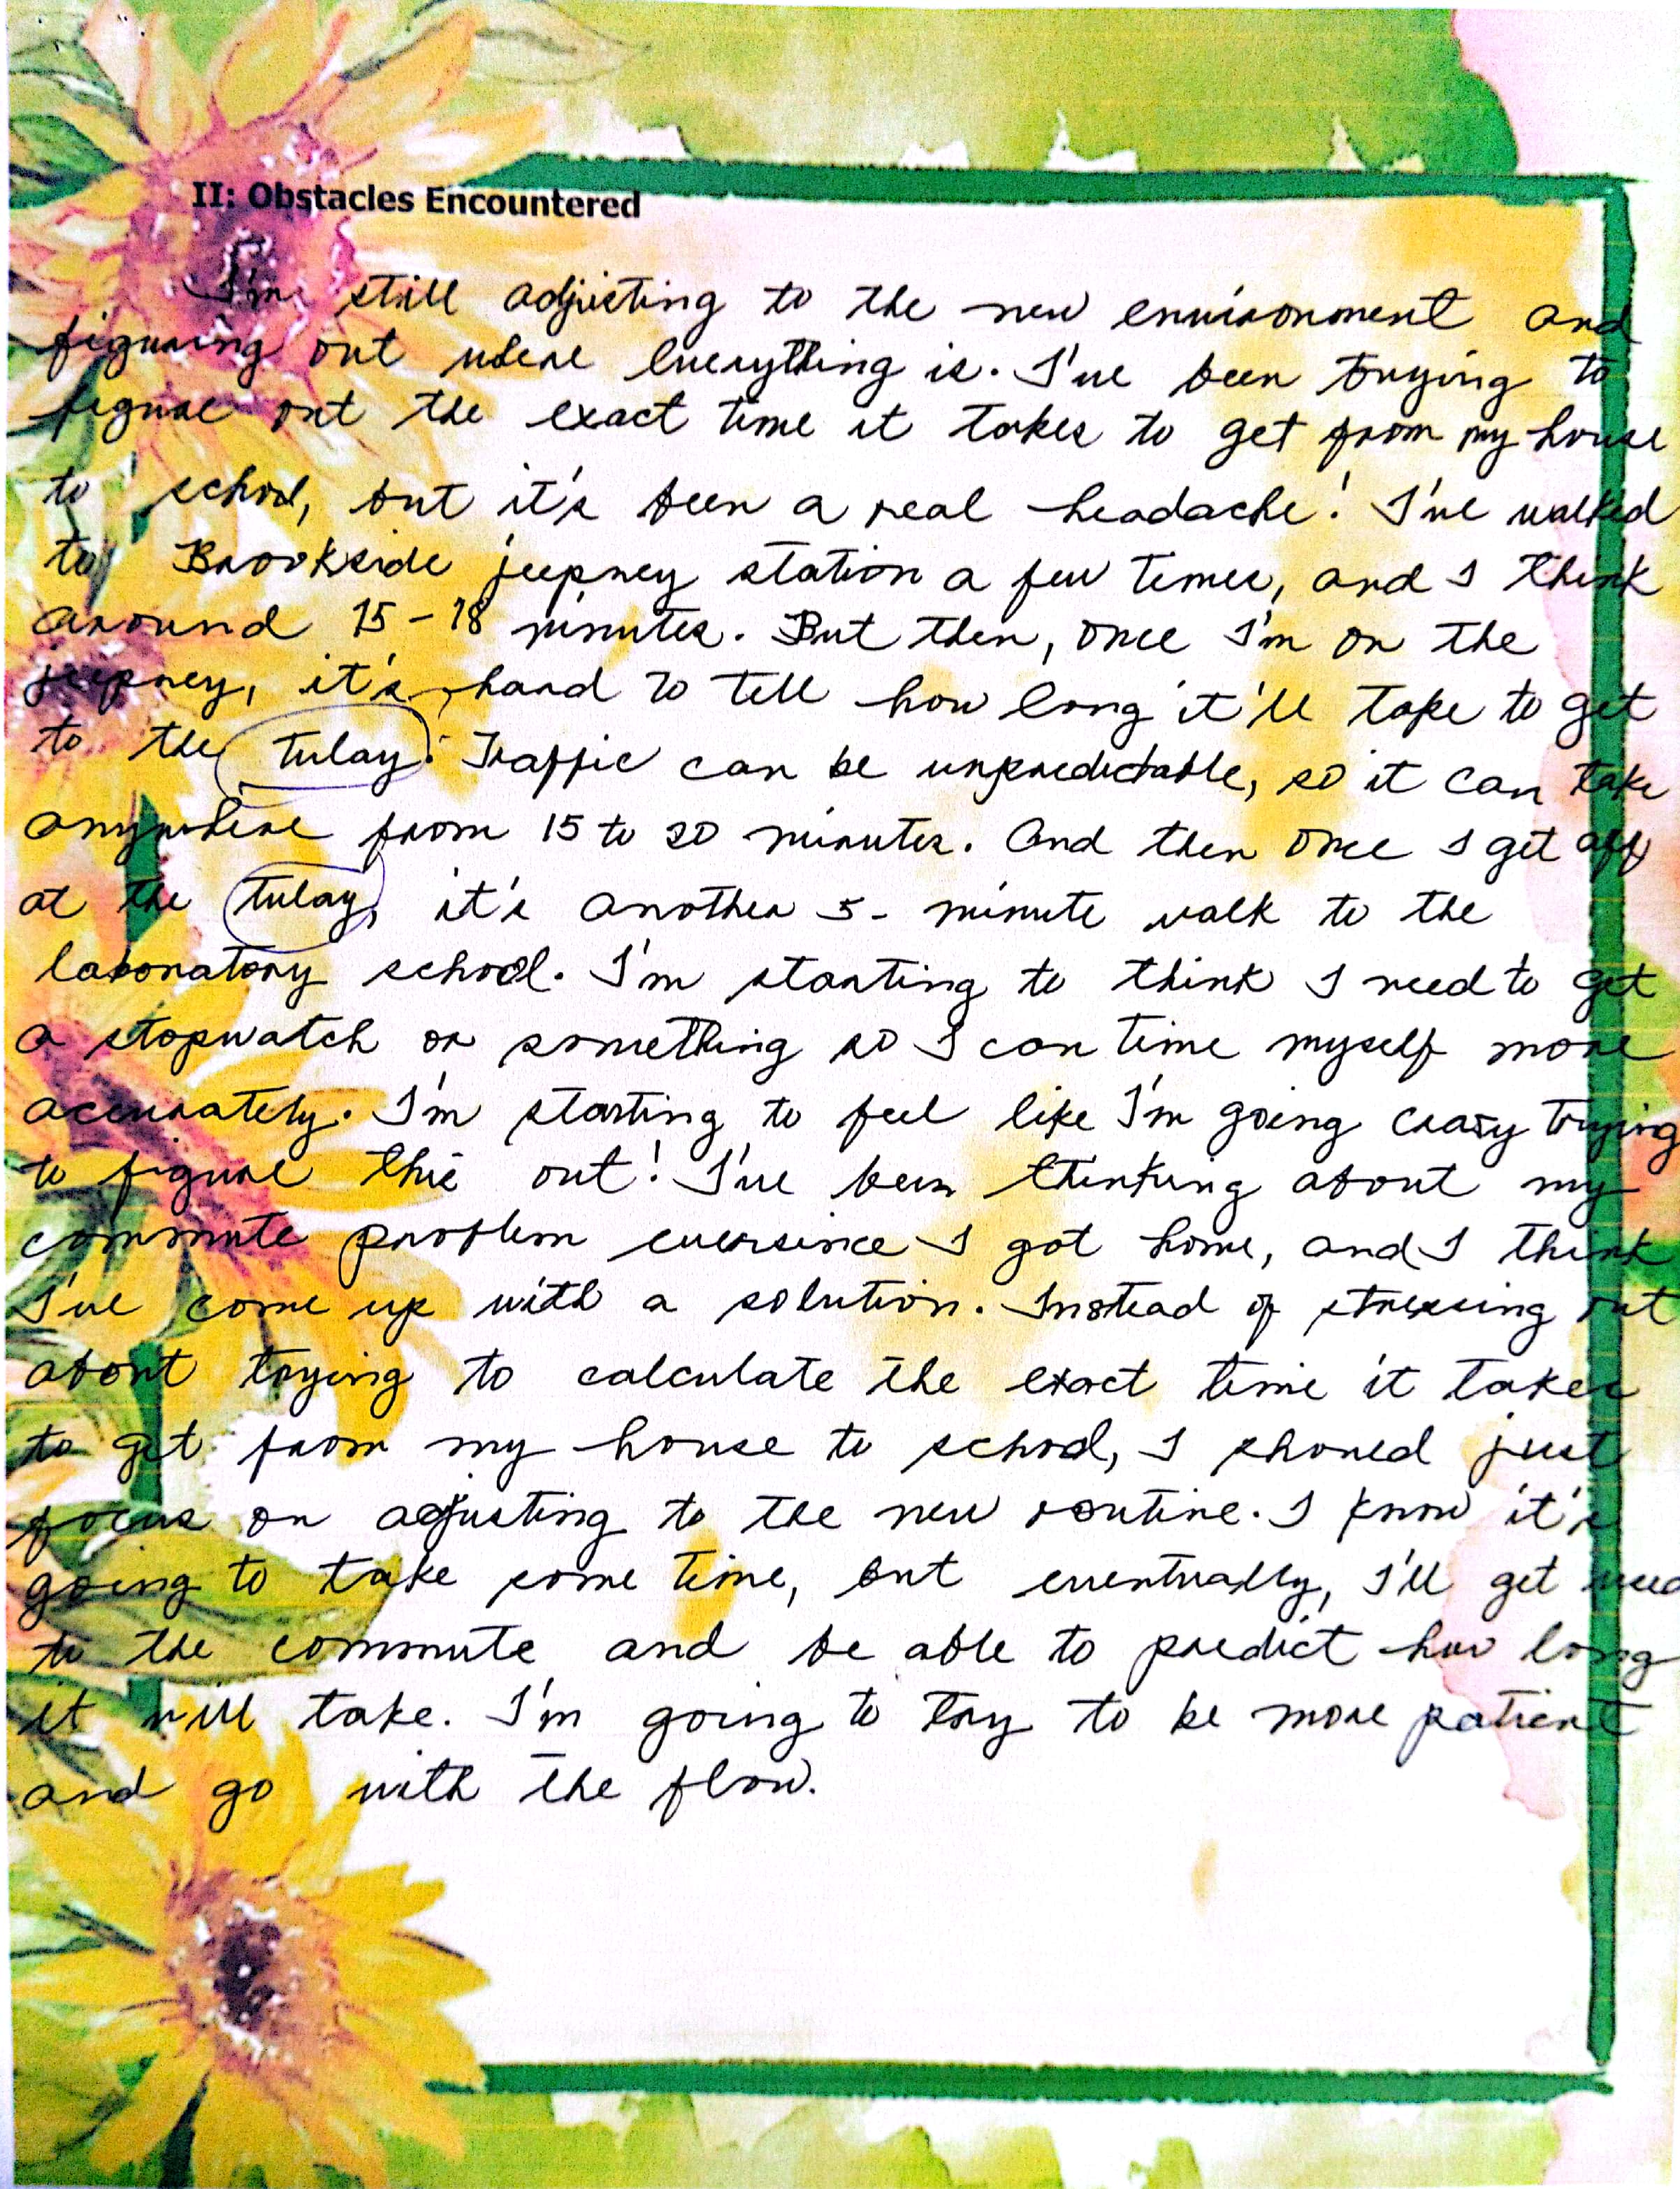 II: Obstacles Encountered
I'm still adjusting to the new environment and
figuring out where everything is. I've been trying to
figure out the exact time it takes to get from my house
to school, but it's been a real headache! I've walked
to Brookside jeepney station a few times, and I think
around 15-18 minutes. But then, once I'm on the
jeepney, it's hard to tell how long it'll take to get
to the tulay. Traffic can be unpredictable, so it can take
anywhere from 15 to 20 minutes. And then once I get off
at the tulay, it's another 5-minute walk to the
laboratory school. I'm starting to think I need to get
a stopwatch or something so I can time myself more
accurately. I'm starting to feel like I'm going crazy trying
to figure this out! I've been thinking about my
commute problem eversince I got home, and I think
I've come up with a solution. Instead of stressing out
about trying to calculate the exact time it takes
to get from my house to school, I should just
focus on adjusting to the new routine. I know it's
going to take some time, but eventually, I'll get used
to the commute and be able to predict how long
it will take. I'm going to try to be more patient
and go with the flow.